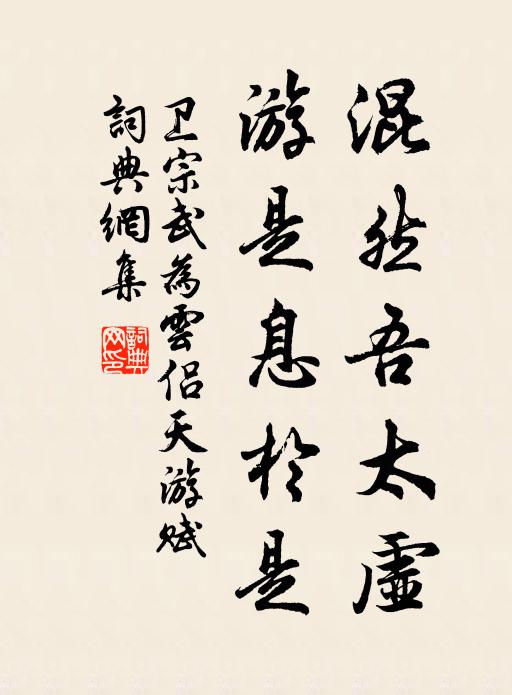 混然吾太虛
游是息於是
卫宗武為雲侶天游賦
詞典網集
詞典網印